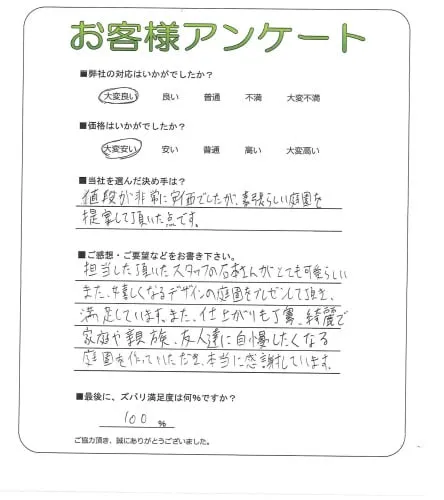 お客様アンケート
■弊社の対応はいかがでしたか?
大変良い 良い 普通 不満 大変不満
■価格はいかがでしたか?
大変安い 安い 普通 高い 大変高い
■当社を選んだ決め手は?
値段が非常に安価でしたが、素晴らしい庭園を
提案して頂いた点です。
■ご感想・ご要望などをお書き下さい。
担当した頂いたスタッフの石本さんがとても可愛らしい
また、嬉しくなるデザインの庭園をプレゼンして頂き、
満足しています。また、仕上がりも丁寧、綺麗で
家庭や親族、友人達に自慢したくなる
庭園を作っていただき、本当に感謝しています。
■最後に、ズバリ満足度は何%ですか?
100 %
ご協力頂き、誠にありがとうございました。